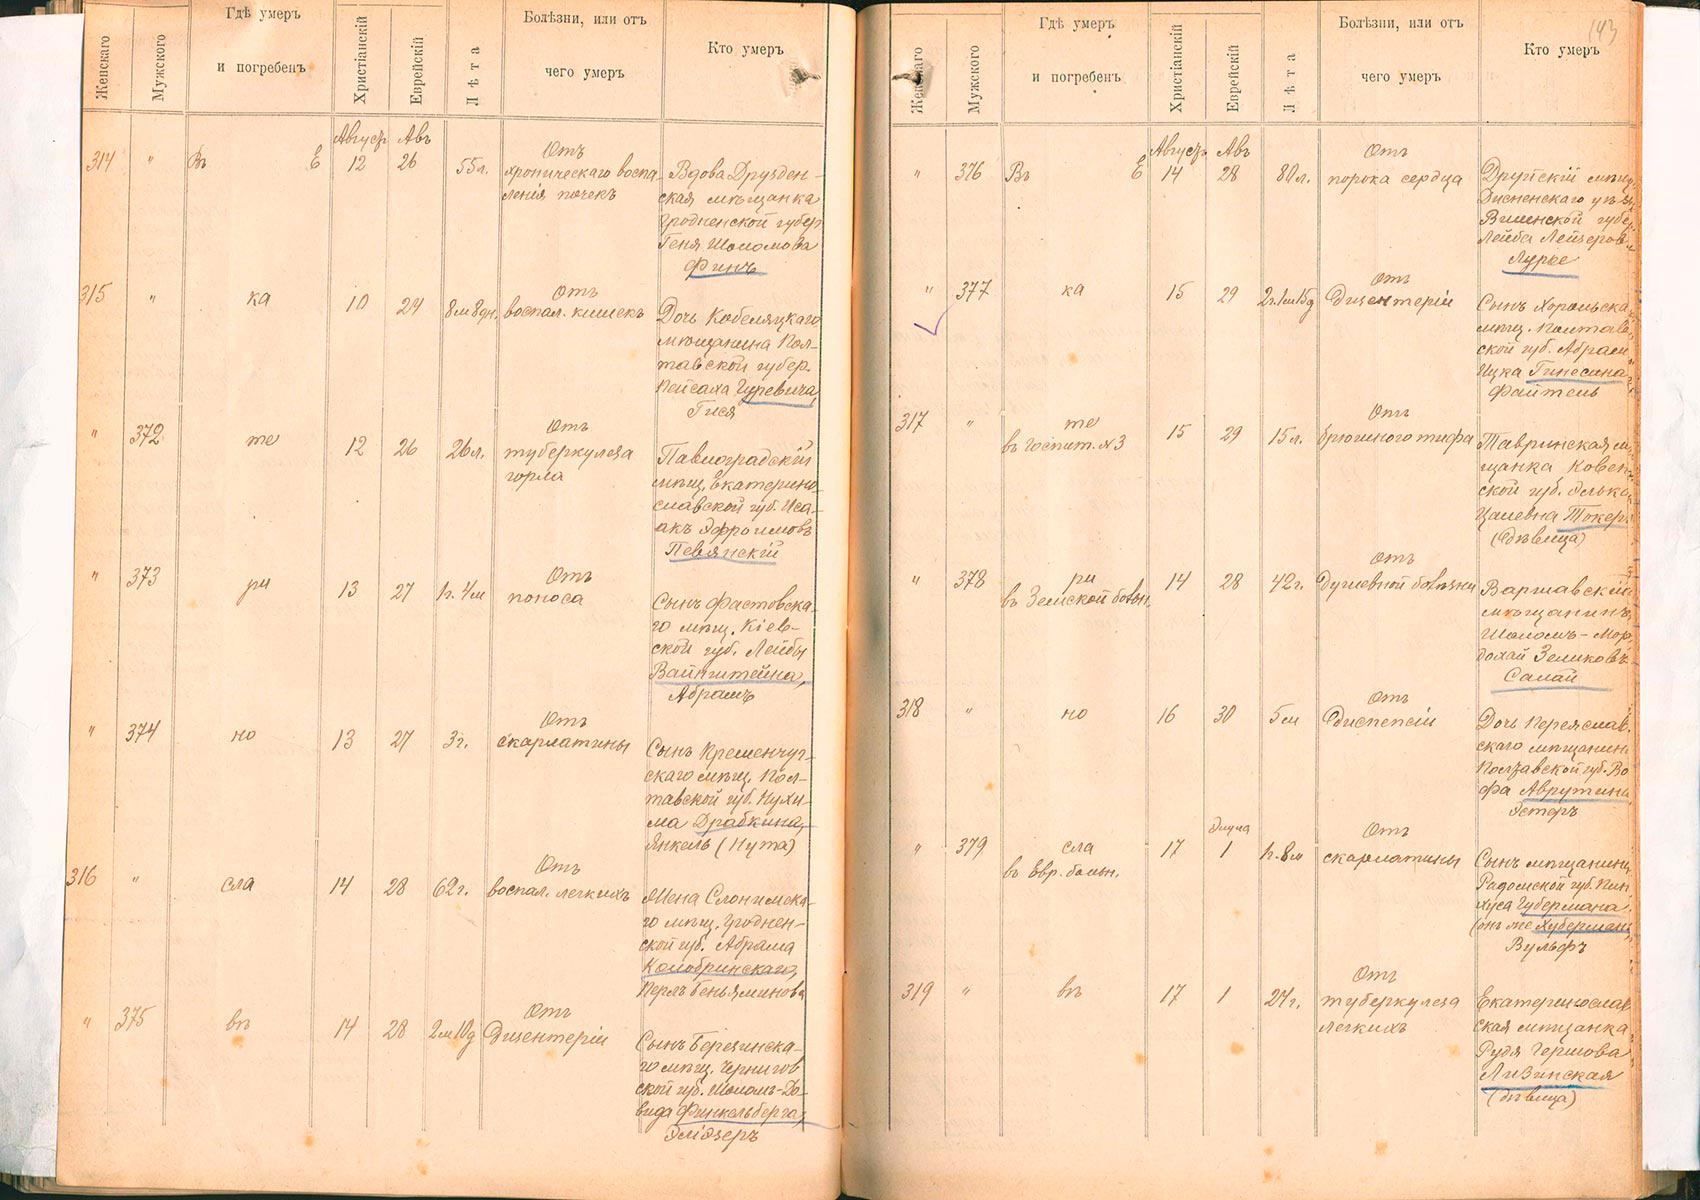 Женскаго
Мужского
Гдѣ умеръ
и погребенъ
Христіанскій
Еврейскій
Лѣта
Болѣзни, или отъ
чего умеръ
Кто умеръ
Август Авъ
314 " Въ Е 12 26 55л.
Отъ
хроническаго воспа-
ленія почекъ
Вдова Друзден-
ская мѣщанка
Гродненской губер.
Геня Шоломова
Финъ
315 " ка 10 24 8м 8дн.
Отъ
воспал. кишекъ
Дочь Кобеляцкаго
мѣщанина Пол-
тавской губер.
Пейсаха Гуревича,
Гися
" 372 те 12 26 26л.
Отъ
туберкулеза
горла
Павлоградскій
мѣщ. Екатерино-
славской губ. Иса-
акъ Эфроимовъ
Певянскій
" 373 ри 13 27 1г. 4м
Отъ
поноса
Сынъ Фастовска-
го мѣщ. Кіев-
ской губ. Лейбы
Вайнштейна,
Абрамъ
" 374 но 13 27 3г.
Отъ
скарлатины
Сынъ Кременчуг-
скаго мѣщ. Пол-
тавской губ. Нухи-
ма Драбкина,
Янкель (Нута)
316 " сла 14 28 62г.
Отъ
воспал. легкихъ
Жена Слонимска-
го мѣщ. Гроднен-
ской губ. Абрама
Колобринскаго,
Перлъ Беньяминова
" 375 въ 14 28 2м 10д
Отъ
Дизентеріи
Сынъ Березинска-
го мѣщ. Чернигов
ской губ. Шоломъ-До-
вида Финкельберга,
Эліэзеръ
143
Женскаго
Мужского
Гдѣ умеръ
и погребенъ
Христіанскій
Еврейскій
Лѣта
Болѣзни, или отъ
чего умеръ
Кто умеръ
Август Авъ
" 376 Въ Е 14 28 80л.
Отъ
порока сердца
Друйскій мѣщ.
Дисненскаго уѣз.
Виленской губер
Лейба Лейзеровъ
Лурье
" 377 ка 15 29 2г. 1м 15д
Отъ
Дизентеріи
Сынъ Хорольска
мѣщ. Полтав
ской губ. Абрам
Ицка Гинесина
Файтель
317 " те
въ госпит. №3 15 29 15л.
Отъ
брюшного тифа
Тавринская м
щанка Ковен
ской губ. Элька
Цалевна Токеръ
(Дѣвица)
" 378 ри
въ Земской больн. 14 28 42г.
Отъ
Душевной болѣзни
Варшавскій
мѣщанинъ
Шоломъ-Мор
дохай Зеликовъ
Салай
318 " но 16 30 5м
Отъ
Диспепсіи
Дочь Переяслав.
скаго мѣщанин
Полтавской губ. Во
фа Аврутина
Эстеръ
Элула
" 379 сла
въ Евр. больн. 17 1 1г. 8м
Отъ
скарлатины
Сынъ мѣщанина
Радомской губ. Пин
хуса Губермана
(онъ же Хуберманъ
Вульфъ
319 " въ 17 1 24г.
Отъ
туберкулеза
легкихъ
Екатеринослав
ская мѣщанка
Рудя Гершова
Лизинская
(дѣвица)